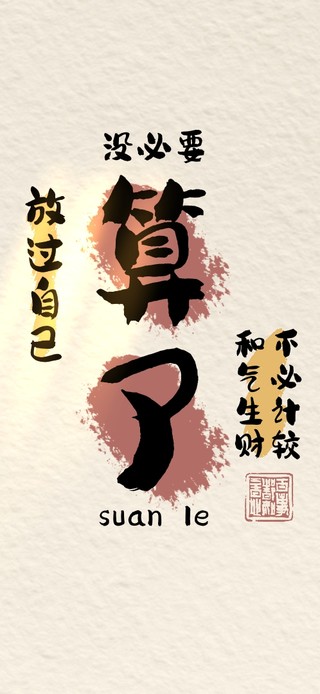 没必要
算了
放过自己
不必计较
和气生财
suan le